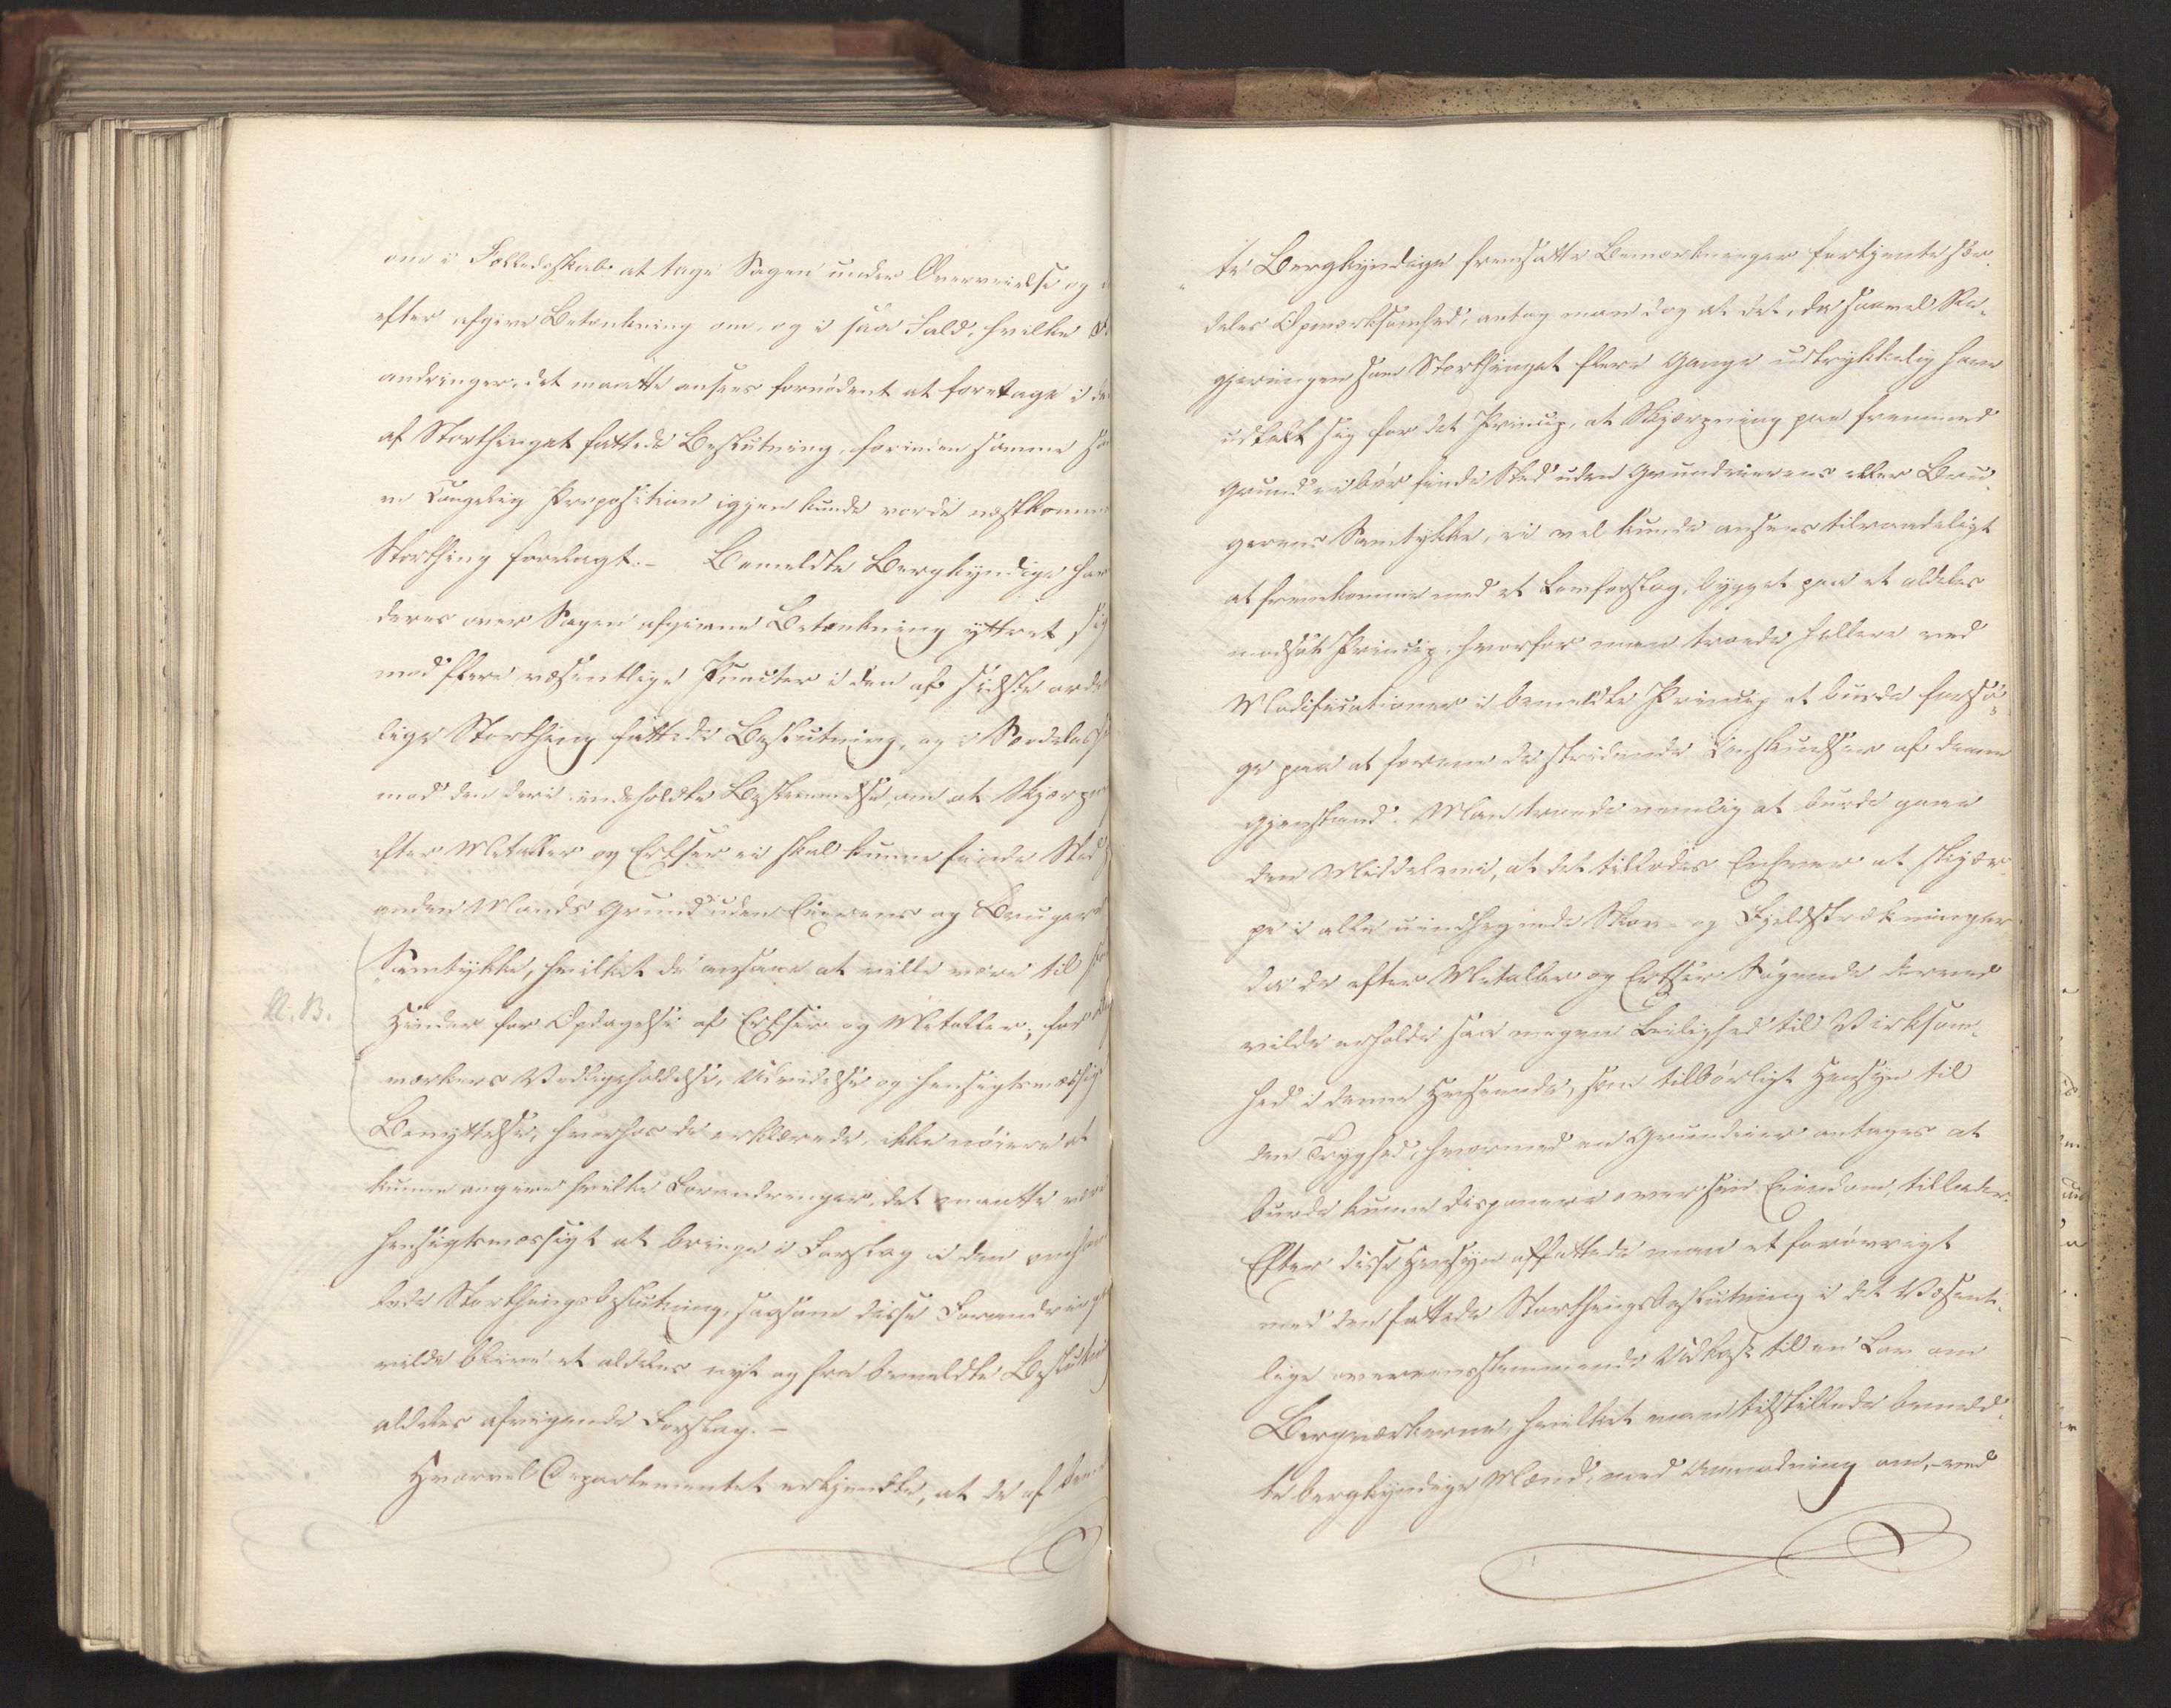 om i Fælledsskab at tage Sagen under Overveielse og
efter afgive Betænkning om, og i saa Fald, hvilke
andringer, det maatte ansees fornødent at foretage i
af Storthinget fattede Beslutning, forinden samme
en Kongelig Proposition igjen kunde vorde næstkomm
Storthing forelagt. – Bemeldte Bergkyndige har
deres over Sagen afgivne Betænkning yttret sig
mod flere væsentlige Puncter i den af sidste orde
lige Storthing fattede Beslutning, og i Særdeles
mod den deri indeholdte Bestemmelse, om at Skjærp
efter Metaller og Ertser ei skal kunne finde Sted
anden Mands Grund uden Eierens og Bruger
Samtykke, hvilket de ansaae at ville være til
N.B.
Hinder for Opdagelse af Ertser og Metaller, for
værkers Vedligeholdelse, Udvidelse og hensigtsmæssig
Benyttelse, hvorhos de erklærede, ikke nøiere at
kunne angive hvilke Forandringer, det maatte være
hensigtsmæssigt at bringe i Forslag i den omhan
lede Storthingsbeslutning, saasom disse Forandringer
vilde blive et aldeles nyt og fra bemeldte Beslutning
aldeles afvigende Forslag. –
Hvorvel Departementet erkjendte, at de af
te Bergkyndige fremsatte Bemærkninger fortjente sær-
deles Opmærksomhed, antog man dog at det, da saavel Re-
gjeringen som Storthinget flere Gange udtrykkelig have
udtalt sig for det Princip, at Skjærpning paa fremmed
Grund ei bør finde Sted uden Grundeierens eller Bru-
gerens Samtykke, ei vel kunde ansees tilraadeligt
at fremkomme med et Lovforslag, bygget paa et aldeles
modsat Princip, hvorfor man troede hellere ved
Modificationer i bemeldte Princip at burde forsø-
ge paa at forene de stridende Anskuelser af denne
Gjenstand. Man troede nemlig at burde gaae
den Middelvei, at det tillodes Enhver at skjær-
pe i alle uindhegnede Skov- og Fjeldstrækninger
da de efter Metaller og Ertser Søgende derved
vilde erholde saa megen Leilighed til Virksom-
hed i denne Henseende, som tilbørligt Hensyn til
den Tryghed, hvormed en Grundeier antages at
burde kunne disponere over sin Eiendom, tillader.
Efter disse Hensyn affattede man et forøvrigt
med den fattede Storthingsbeslutning i det Væsent-
lige overeensstemmende Udkast til en Lov om
Bergværkerne, hvilket man tilstillede bemeld-
te bergkyndige Mænd, med Anmodning om, ved